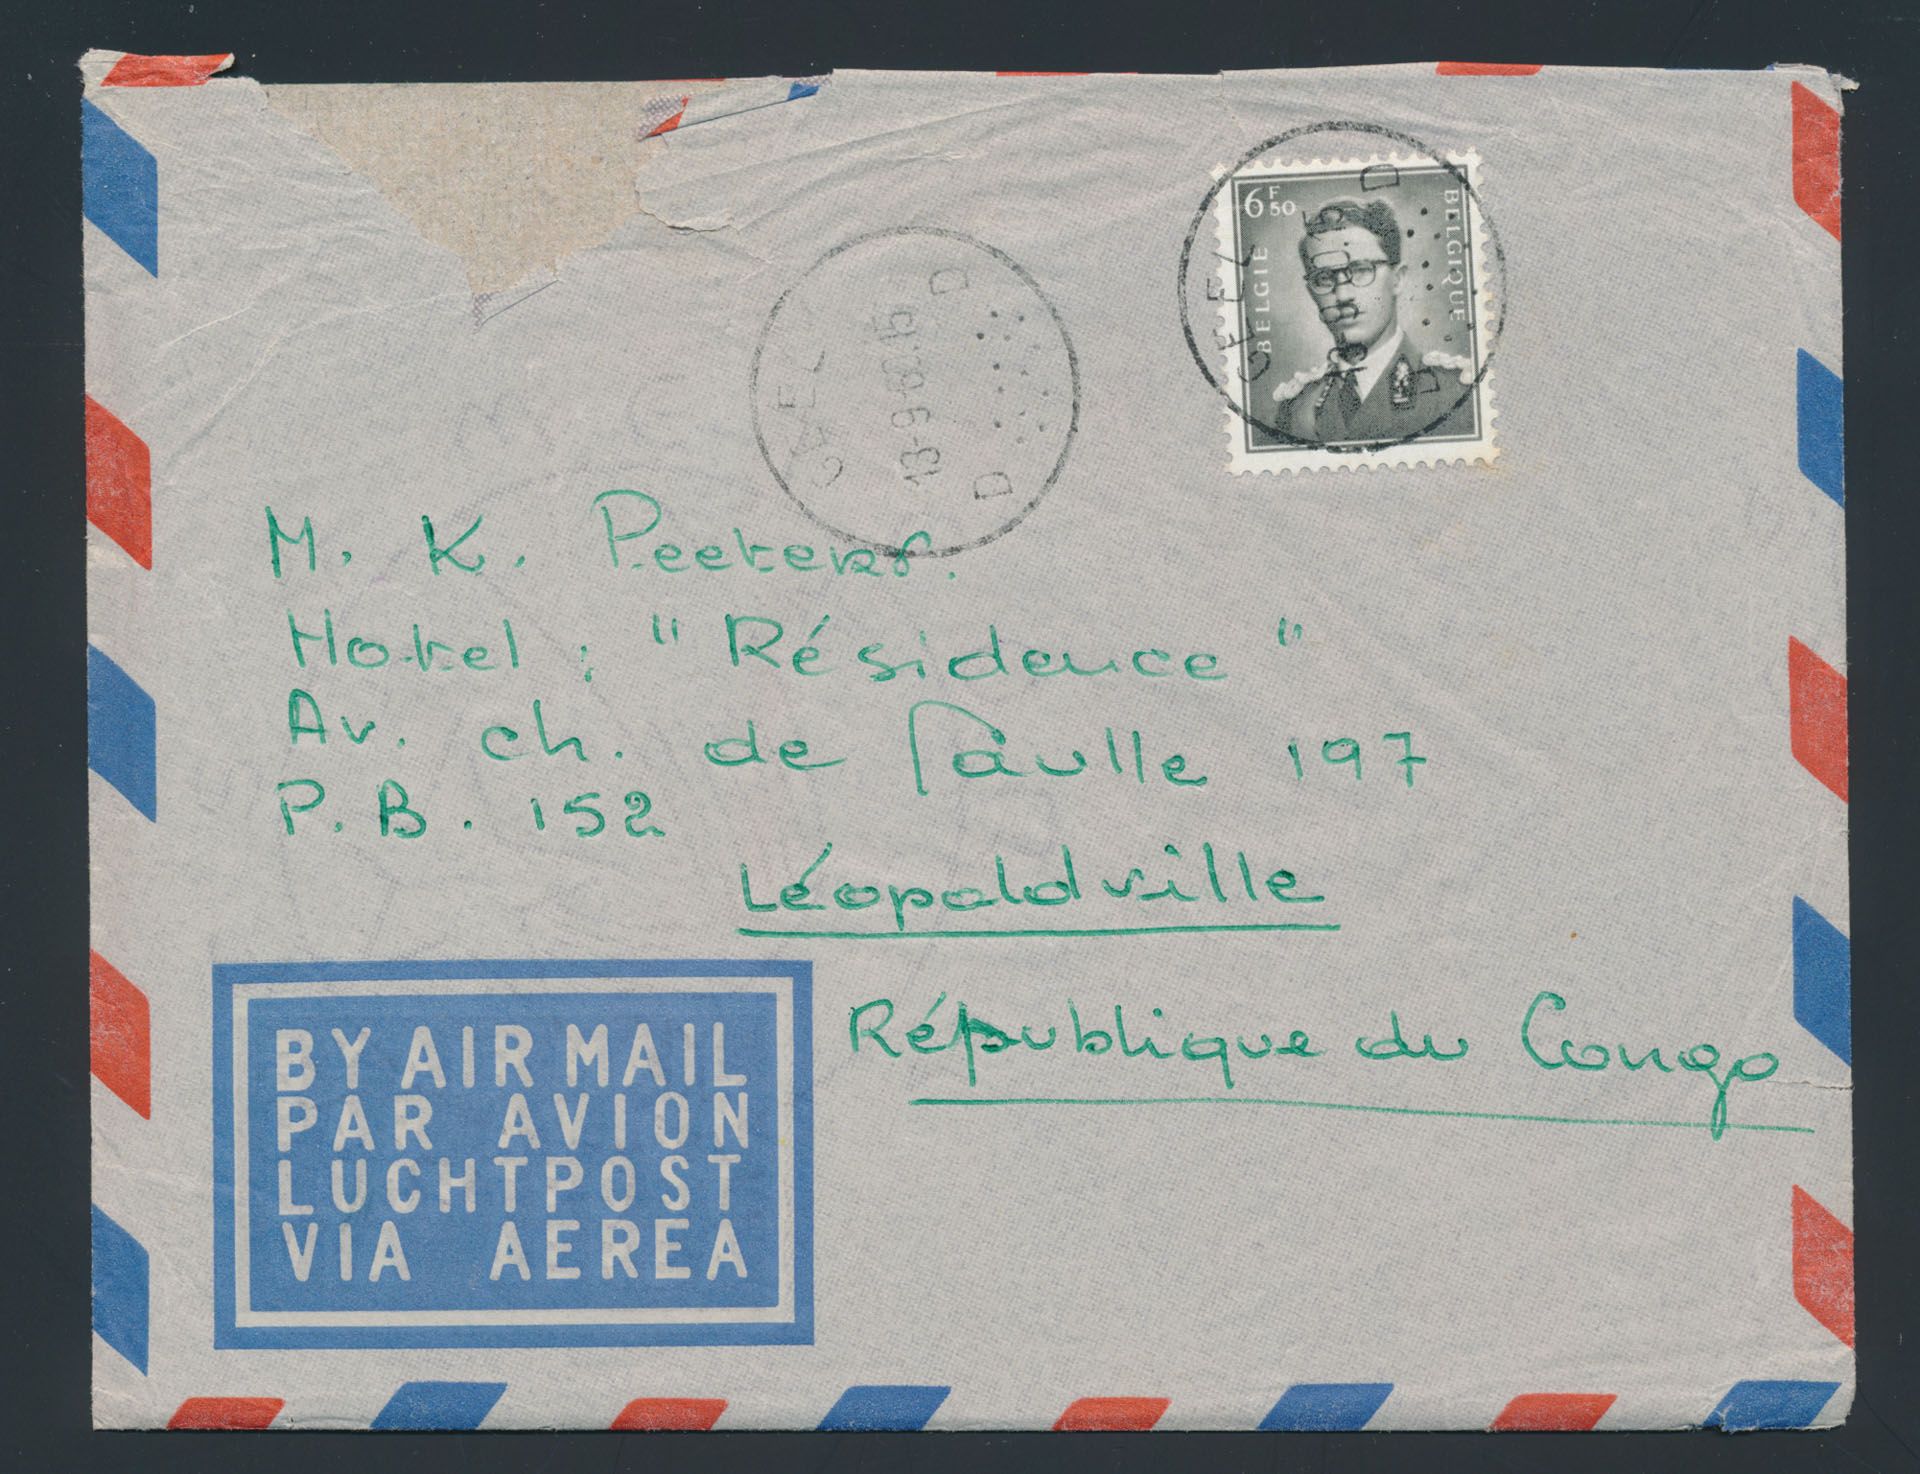 6F50
BELGIE
BELGIQUE
GEEL
D D
GEEL
13-9-62.15
D D
M. K. Peeters.
Hotel : " Résidence "
Av. ch. de Gaulle 197
P.B. 152
Léopoldville
République du Congo
BY AIR MAIL
PAR AVION
LUCHTPOST
VIA AEREA